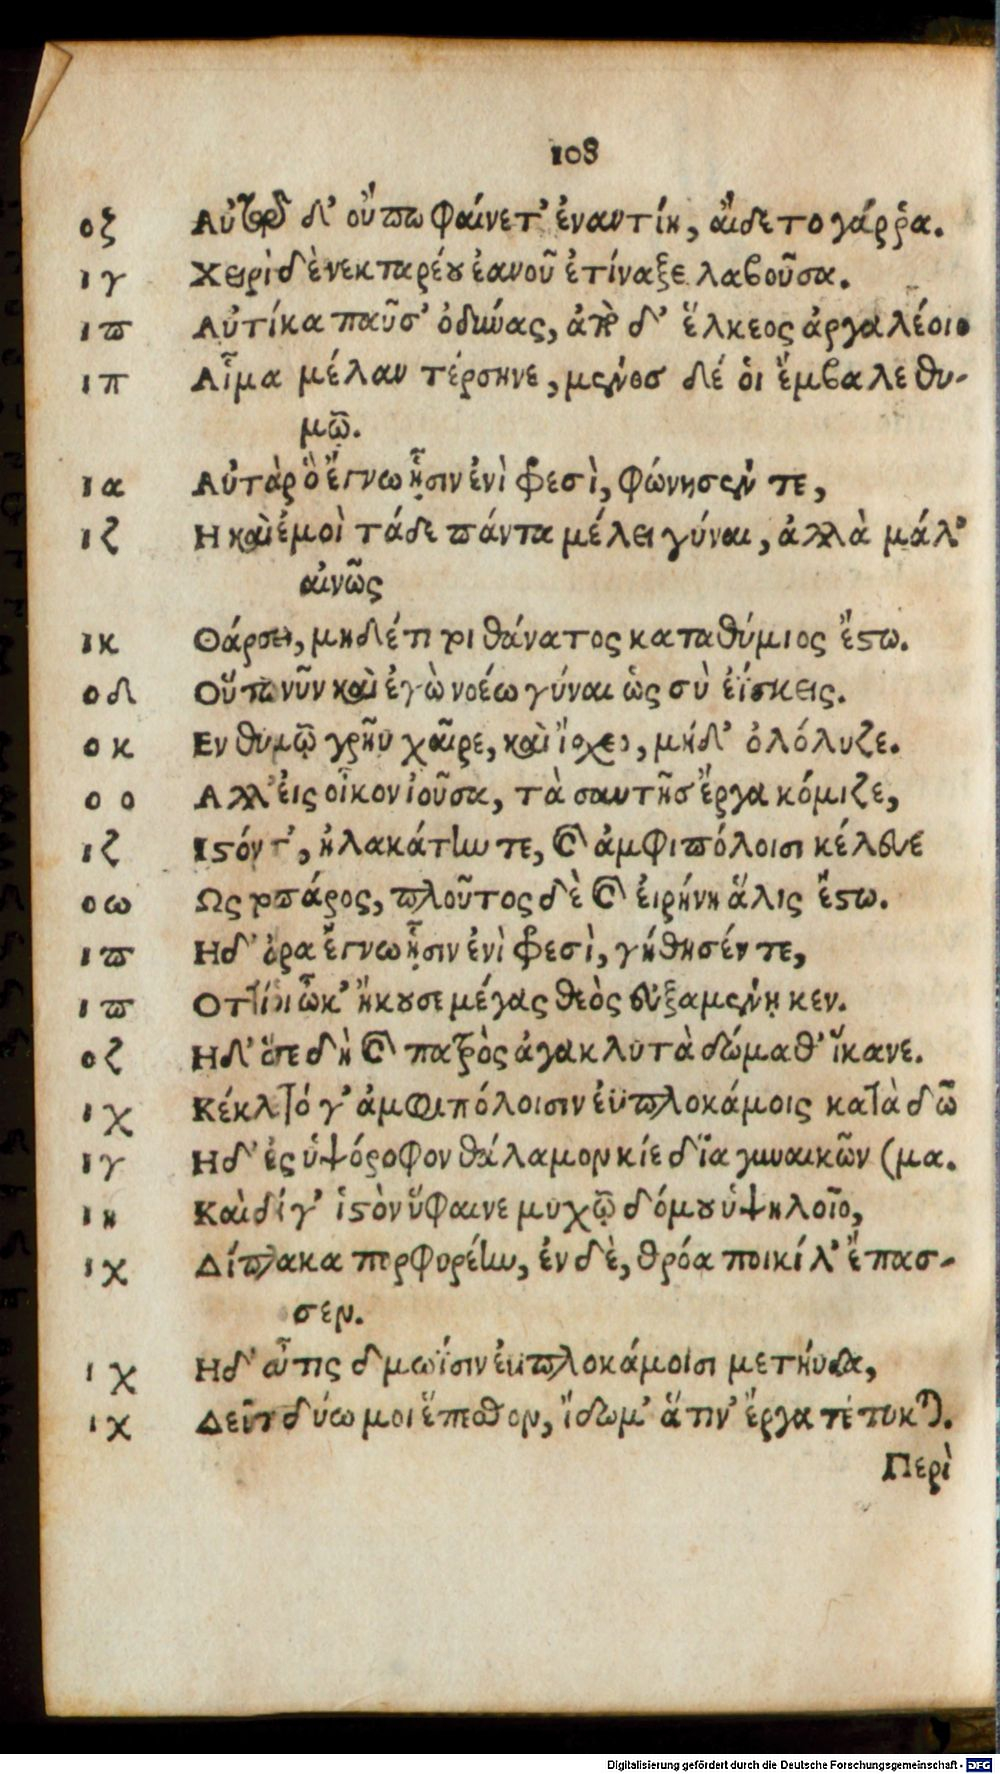 108
οζ Αὐτοῦ δ' οὔπω φαίνετ' ἐναντίη, ἄιδετο γάρ ῥα.
ιγ Χειρὶ δὲ νεκταρέου ἑανοῦ ἐτίναξε λαβοῦσα.
ιϖ Αὐτίκα παῦσ' ὀδύνας, ἀπὸ δ' ἕλκεος ἀργαλέοιο
ιπ Αἷμα μέλαν τέρσηνε, μένος δέ ὁι ἔμβαλε θυ-
μῷ.
ια Αὐτὰρ ὃ ἔγνω ᾗσιν ἐνὶ φρεσὶ, φώνησέν τε,
ιζ Η καὶ ἐμοὶ τάδε πάντα μέλει γύναι, ἀλλὰ μάλ'
αἰνῶς
ικ Θάρσει, μηδέτι τοι θάνατος καταθύμιος ἔστω.
οδ Οὔπω νῦν καὶ ἐγὼ νοέω γύναι ὡς σὺ ἐΐσκεις.
οκ Εν θυμῷ γρῆυ χαῖρε, καὶ ἴσχεο, μήδ' ὀλόλυζε.
οο Αλλ' ἐις οἶκον ἰοῦσα, τὰ σαυτῆσ ἔργα κόμιζε,
ιζ Ιστόν τ', ἠλακάτην τε, καὶ ἀμφιπόλοισι κέλευε
οω Ως τοπάρος, πλοῦτος δὲ καὶ ἐιρήνη ἅλις ἔστω.
ιϖ Ηδ' ἄρα ἔγνω ᾗσιν ἐνὶ φρεσὶ, γήθησέν τε,
ιϖ Οττί ὁι ὦκ' ἤκουσε μέγας θεὸς εὐξαμένῃ κεν.
οζ Ηδ' ὅτε δὴ καὶ πατρὸς ἀγακλυτὰ δώμαθ' ἵκανε.
ιχ Κέκλετό γ' ἀμφιπόλοισιν ἐϋπλοκάμοις κατὰ δῶ
ιγ Ηδ' ἐς ὑψόροφον θάλαμον κίε δῖα γυναικῶν (μα.
ιη Καὶ δί γ' ἱστὸν ὕφαινε μυχῷ δόμου ὑψηλοῖο,
ιχ Δίπλακα πορφυρέην, ἐν δὲ, θρόα ποικίλ' ἔπασ-
σεν.
ιχ Ηδ' αὖτις δμωΐσιν ἐϋπλοκάμοισι μετηύδα,
ιχ Δεῦτε δύω μοι ἕπεσθον, ἴδωμ' ἅτιν' ἔργα τέτυκται.
Περὶ
Digitalisierung gefördert durch die Deutsche Forschungsgemeinschaft - DFG